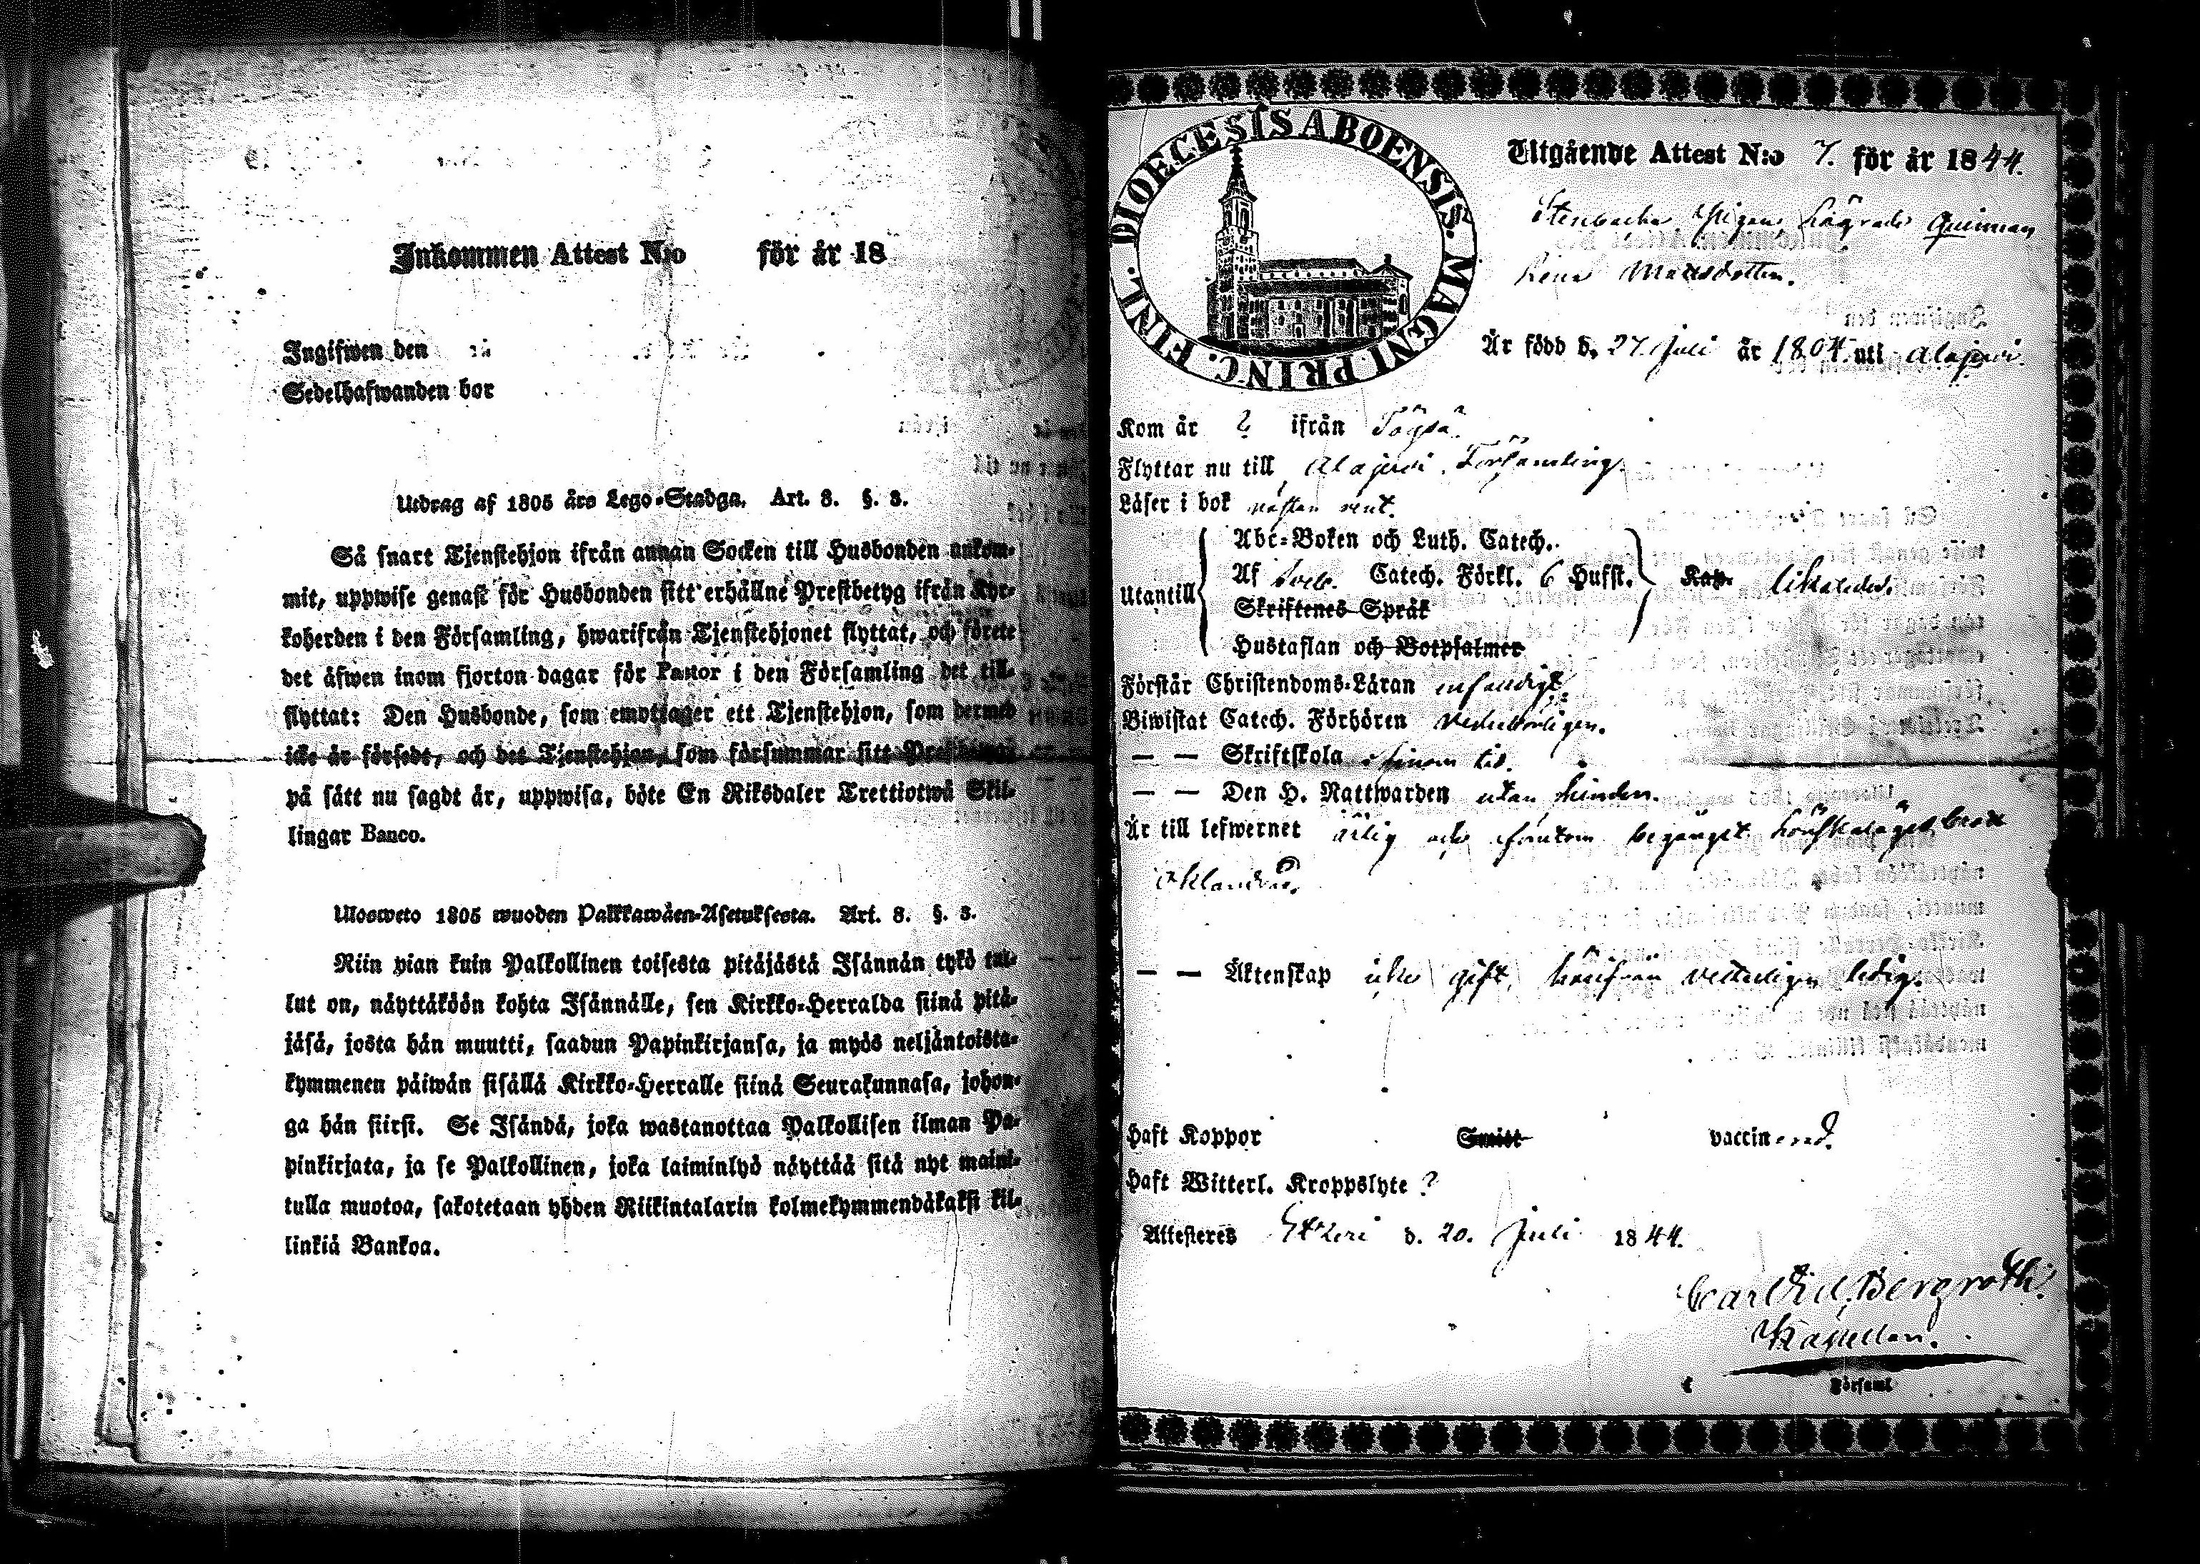 Inkommen Attest N:o för år 18
Ingifwen den
Sedelhafwanden bor
Utdrag af 1805 års Lego-Stadga. Art. 8. §. 3.
Så snart Tjenstehjon ifrån annan Socken till Husbonden ankom-
mit, uppwise genast för Husbonden sitt erhållne Prestbetyg ifrån Kyr-
koherden i den Församling, hwarifrån Tjenstehjonet flyttat, och förete
det äfwen inom fjorton dagar för Pastor i den Församling det till-
flyttat: Den Husbonde, som emottager ett Tjenstehjon, som dermed
icke är försedt, och det Tjenstehjon, som försummar sitt Prestbetyg
på sätt nu sagdt är, uppwisa, böte En Riksdaler Trettiotwå Skil-
lingar Banco.
Ulosweto 1805 wuoden Palkkawäen-Asetuksesta. Art. 8. §. 3.
Niin pian kuin Palkollinen toisesta pitäjästä Isännän tykö tul-
lut on, näyttäköön kohta Isännälle, sen Kirkko-Herralda siinä pitä-
jäsä, josta hän muutti, saadun Papinkirjansa, ja myös neljäntoista-
kymmenen päiwän sisällä Kirkko-Herralle siinä Seurakunnasa, johon-
ga hän siirsi. Se Isändä, joka wastanottaa Palkollisen ilman Pa-
pinkirjata, ja se Palkollinen, joka laiminlyö näyttää sitä nyt maini-
tulla muotoa, sakotetaan yhden Riikintalarin kolmekymmendäkaksi kil-
linkiä Bankoa.
DIOECESIS ABOENSIS. MAGNI PRINC. FINL.
Utgående Attest N:o 7. för år 1844.
Stenbacka Pigan, Lägrade Quinnan
Lena Mattsdotter.
Är född d. 27 Juli år 1804 uti Alajervi
Kom år ? ifrån Töysä
Flyttar nu till Alajervi Församling
Läser i bok nästan rent.
Utantill
Abc-Boken och Luth. Catech.
Af Sveb. Catech. Förkl. 6 Hufst. Kap. likaledes.
Skriftenes Språk
Hustaflan och Botpsalmer
Förstår Christendoms-Läran enfaldigt.
Biwistat Catech. Förhören vederbörligen.
— — Skriftskola i sinom tid.
— — Den H. Nattwarden utan hinder.
Är till lefwernet ärlig och förutom begånget Lönskalägesbrott
oklandrad.
— — Äktenskap icke gift, härifrån vetterligen ledig.
Haft Koppor Smitt vaccinerad.
Haft Witterl. Kroppslyte ?
Attesteras Etseri d. 20. Juli 1844.
Carl Bergroth
Kapellan.
Församl